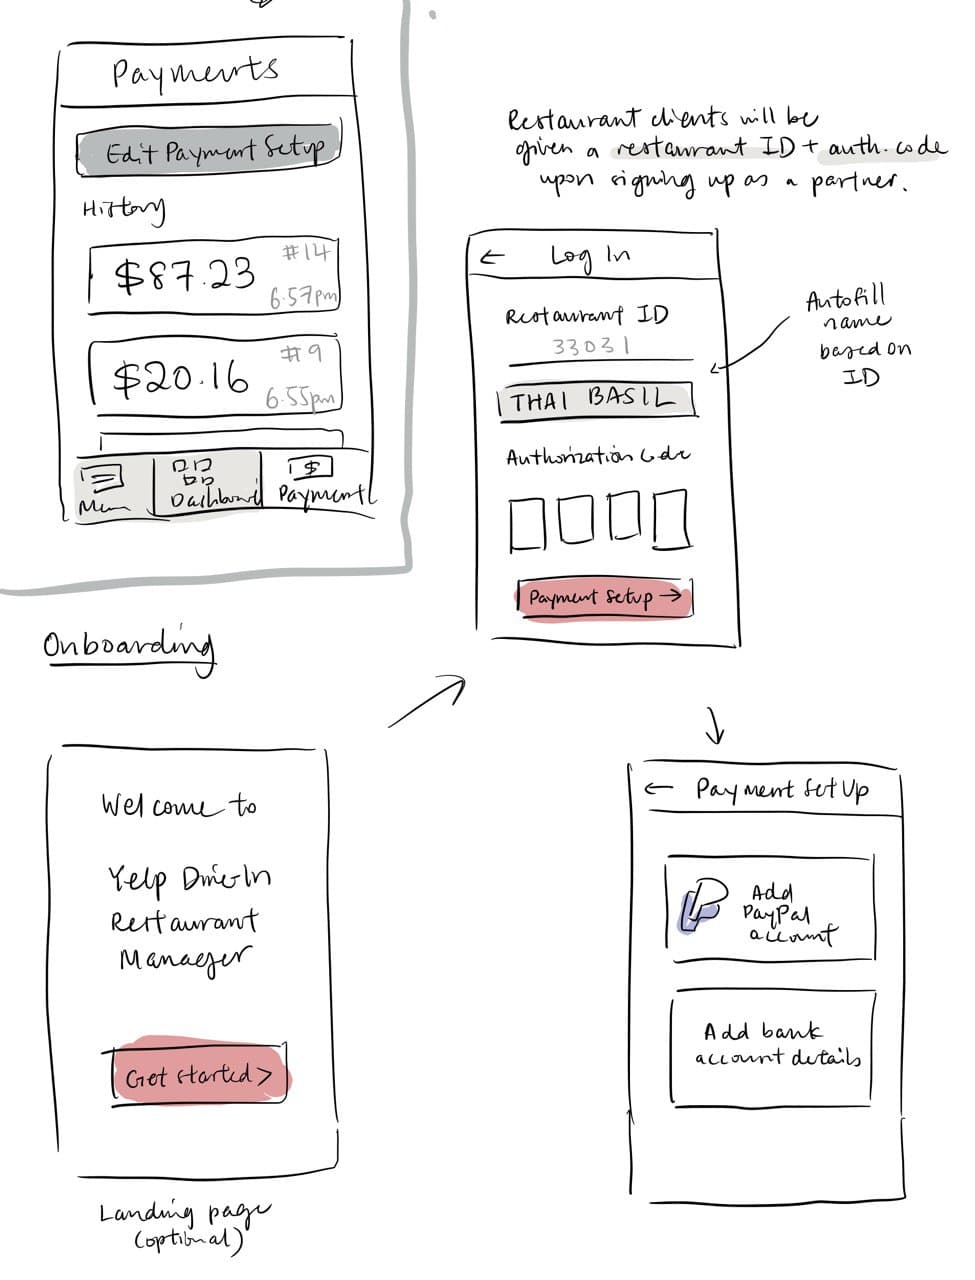 Payments
Edit Payment Setup
History
$87.23
#14
6:57pm
$20.16
#9
6:55pm
Menu
Dashboard
$
Payment
Restaurant clients will be
given a restaurant ID + auth. code
upon signing up as a partner.
← Log In
Restaurant ID
33031
THAI BASIL
Authorization Code
Payment Setup →
Autofill
name
based on
ID
Onboarding
Welcome to
Yelp Drive-In
Restaurant
Manager
Get started >
Landing page
(optional)
← Payment Set Up
Add
PayPal
account
Add bank
account details